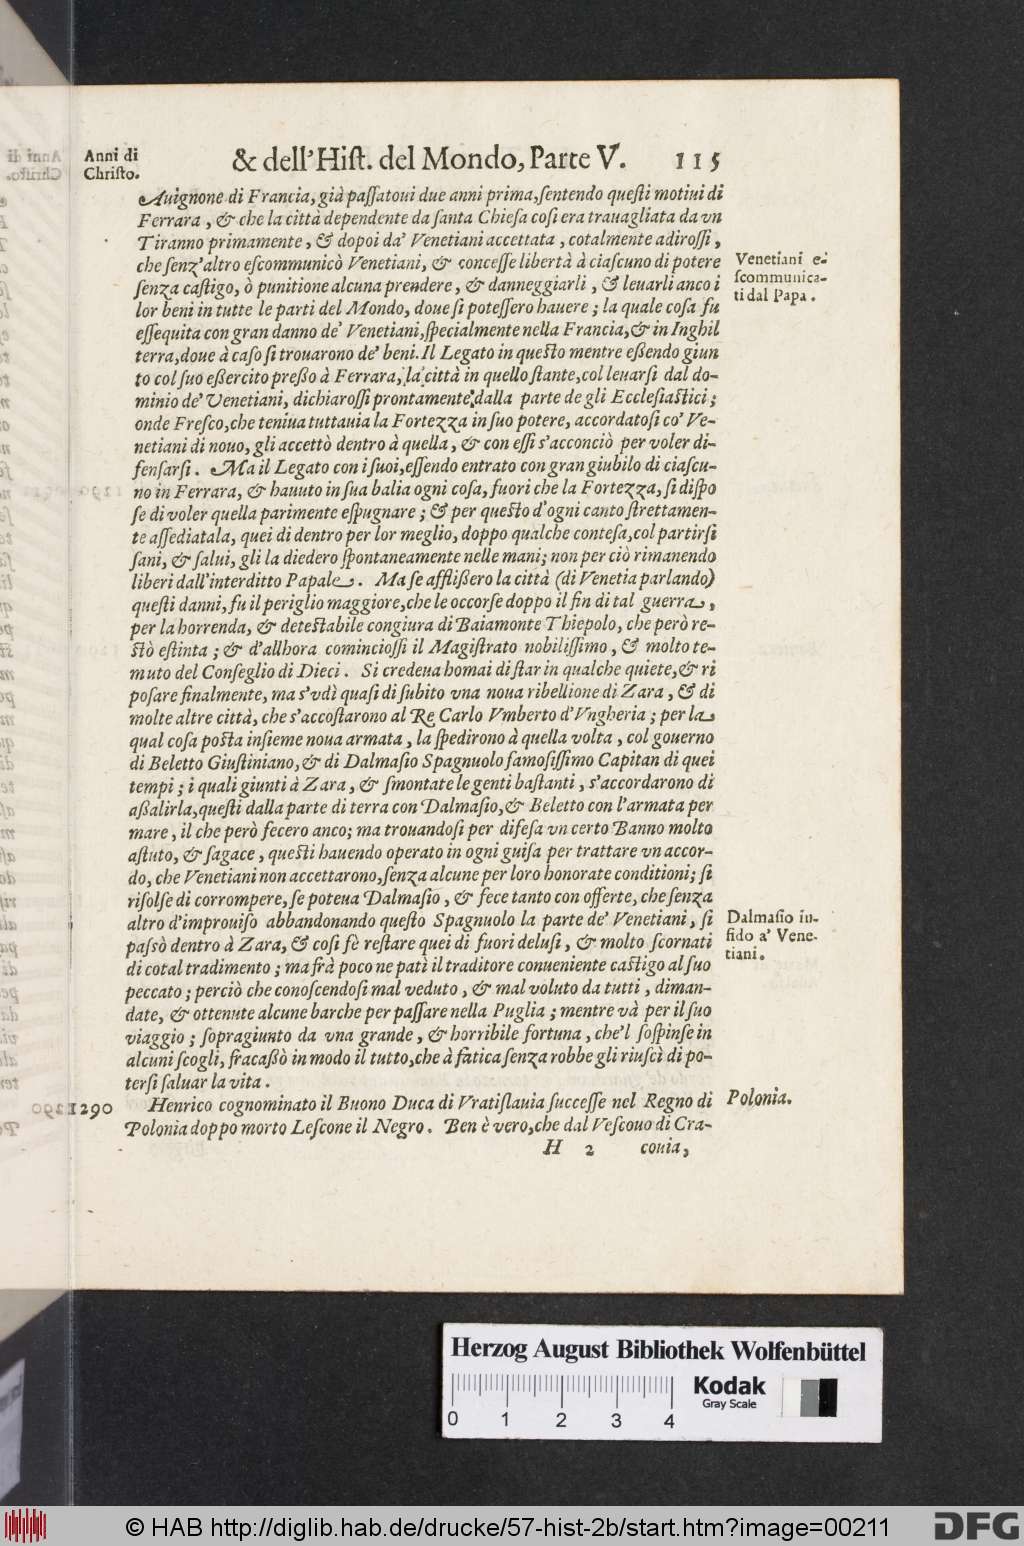 Anni di
Chriſto.
& dell'Hiſt. del Mondo, Parte V. 115
Auignone di Francia, già paſſatoui due anni prima, ſentendo queſti motiui di
Ferrara, & che la città dependente da ſanta Chieſa coſi era trauagliata da vn
Tiranno primamente, & dopoi da' Venetiani accettata, cotalmente adiroſſi,
che ſenz'altro eſcommunicò Venetiani, & conceſſe libertà à ciaſcuno di potere
ſenza caſtigo, ò punitione alcuna prendere, & danneggiarli, & leuarli anco i
lor beni in tutte le parti del Mondo, doue ſi poteſſero hauere; la quale coſa fu
eſſequita con gran danno de' Venetiani, ſpecialmente nella Francia, & in Inghil
terra, doue à caſo ſi trouarono de' beni. Il Legato in queſto mentre eßendo giun
to col ſuo eßercito preßo à Ferrara, la città in quello ſtante, col leuarſi dal do-
minio de' Venetiani, dichiaroſſi prontamente dalla parte de gli Eccleſiaſtici;
onde Freſco, che teniua tuttauia la Fortezza in ſuo potere, accordatoſi co' Ve-
netiani di nouo, gli accettò dentro à quella, & con eſſi s'acconciò per voler di-
fenſarſi. Ma il Legato con i ſuoi, eſſendo entrato con gran giubilo di ciaſcu-
no in Ferrara, & hauuto in ſua balia ogni coſa, fuori che la Fortezza, ſi diſpo
ſe di voler quella parimente eſpugnare; & per queſto d'ogni canto ſtrettamen-
te aſſediatala, quei di dentro per lor meglio, doppo qualche conteſa, col partirſi
ſani, & ſalui, gli la diedero ſpontaneamente nelle mani; non per ciò rimanendo
liberi dall'interditto Papale. Ma ſe afflißero la città (di Venetia parlando)
queſti danni, fu il periglio maggiore, che le occorſe doppo il fin di tal guerra,
per la horrenda, & deteſtabile congiura di Baiamonte Thiepolo, che però re-
ſtò eſtinta; & d'allhora comincioſſi il Magiſtrato nobiliſſimo, & molto te-
muto del Conſeglio di Dieci. Si credeua homai di ſtar in qualche quiete, & ri
poſare finalmente, ma s'vdì quaſi di ſubito vna noua ribellione di Zara, & di
molte altre città, che s'accoſtarono al Re Carlo Vmberto d'Vngheria; per la
qual coſa poſta inſieme noua armata, la ſpedirono à quella volta, col gouerno
di Beletto Giuſtiniano, & di Dalmaſio Spagnuolo famoſiſſimo Capitan di quei
tempi; i quali giunti à Zara, & ſmontate le genti baſtanti, s'accordarono di
aßalirla, queſti dalla parte di terra con Dalmaſio, & Beletto con l'armata per
mare, il che però fecero anco; ma trouandoſi per difeſa vn certo Banno molto
aſtuto, & ſagace, queſti hauendo operato in ogni guiſa per trattare vn accor-
do, che Venetiani non accettarono, ſenza alcune per loro honorate conditioni; ſi
riſolſe di corrompere, ſe poteua Dalmaſio, & fece tanto con offerte, che ſenza
altro d'improuiſo abbandonando queſto Spagnuolo la parte de' Venetiani, ſi
paſsò dentro à Zara, & coſi fè reſtare quei di fuori deluſi, & molto ſcornati
di cotal tradimento; ma frà poco ne patì il traditore conueniente caſtigo al ſuo
peccato; perciò che conoſcendoſi mal veduto, & mal voluto da tutti, diman-
date, & ottenute alcune barche per paſſare nella Puglia; mentre và per il ſuo
viaggio; ſopragiunto da vna grande, & horribile fortuna, che'l ſoſpinſe in
alcuni ſcogli, fracaßò in modo il tutto, che à fatica ſenza robbe gli riuſcì di po-
terſi ſaluar la vita.
1290 Henrico cognominato il Buono Duca di Vratiſlauia ſucceſſe nel Regno di
Polonia doppo morto Leſcone il Negro. Ben è vero, che dal Veſcouo di Cra-
H 2 couia,
Venetiani e-
ſcommunica-
ti dal Papa.
Dalmaſio in-
fido a' Vene-
tiani.
Polonia.
Herzog August Bibliothek Wolfenbüttel
Kodak
Gray Scale
0 1 2 3 4
© HAB http://diglib.hab.de/drucke/57-hist-2b/start.htm?image=00211
DFG